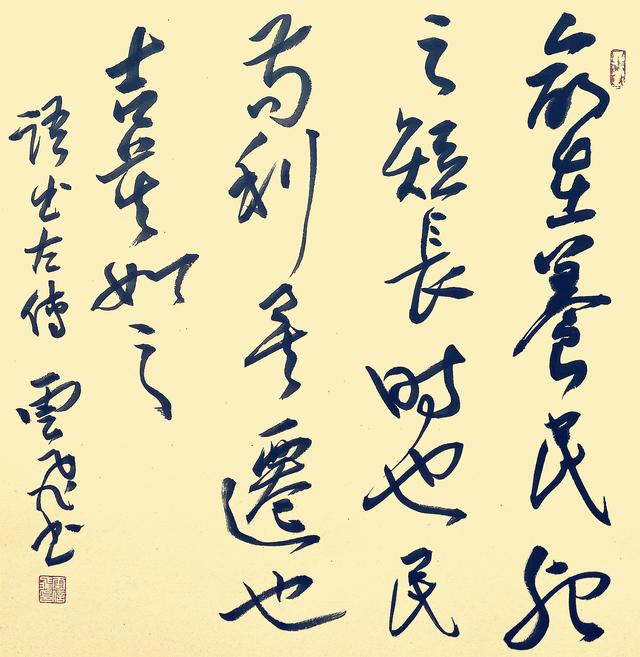 命在養民死
之短長时也民
苟利矣遷也
吉莫如之
語出左傳 雲飛书